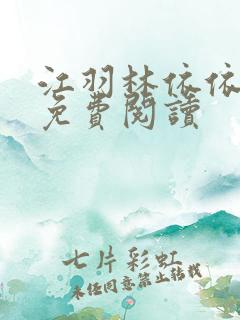 江羽林依依
免費閱讀
七片彩虹
未经同意禁止转载